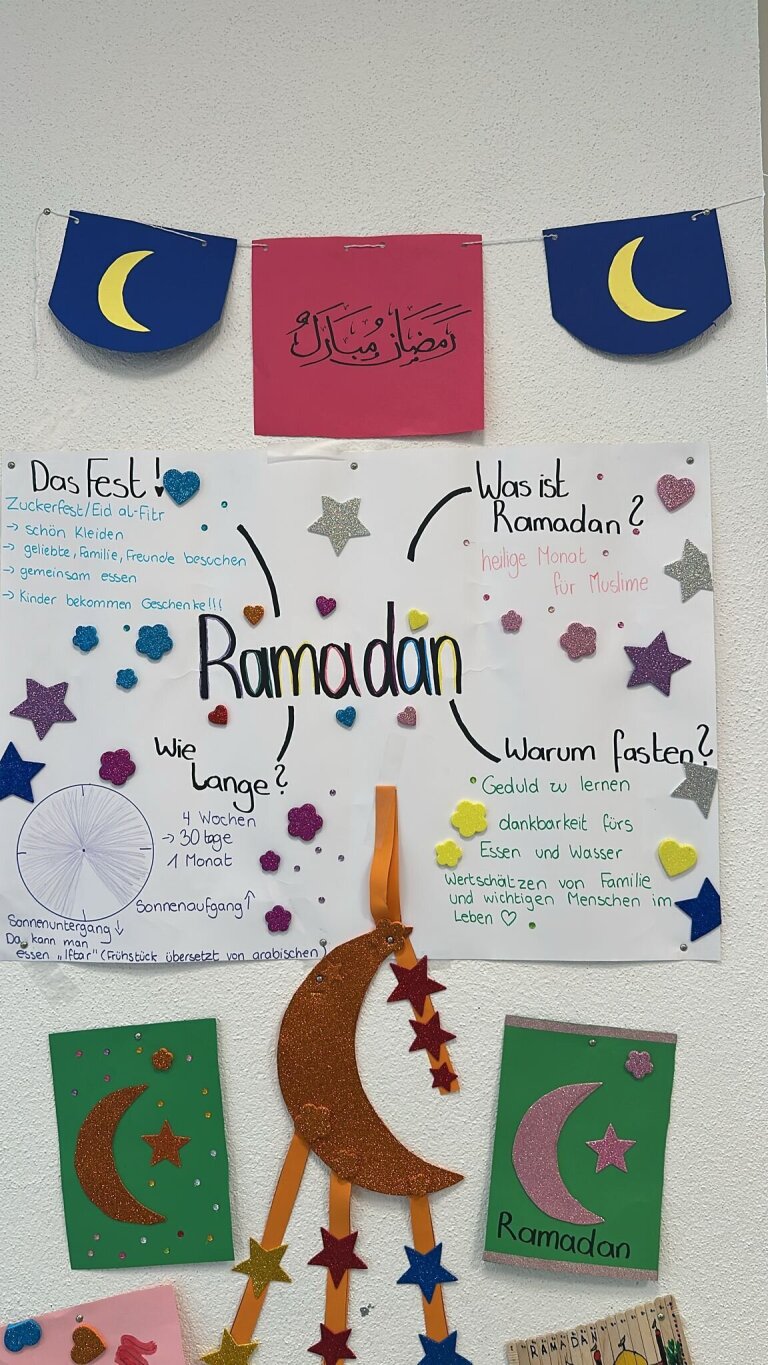 رمضان مبارك
Das Fest!
Zuckerfest/Eid al-Fitr
→ schön Kleiden
→ geliebte, Familie, Freunde besuchen
→ gemeinsam essen
→ Kinder bekommen Geschenke!!!
Was ist
Ramadan?
heilige Monat
für Muslime
Ramadan
Wie
Lange?
4 Wochen
→ 30 tage
1 Monat
Sonnenaufgang ↑
Sonnenuntergang ↓
Da kann man
essen „Iftar" (Frühstück übersetzt von arabischen)
Warum fasten?
Geduld zu lernen
dankbarkeit fürs
Essen und Wasser
Wertschätzen von Familie
und wichtigen Menschen im
Leben ♡
Ramadan
RAMADAN